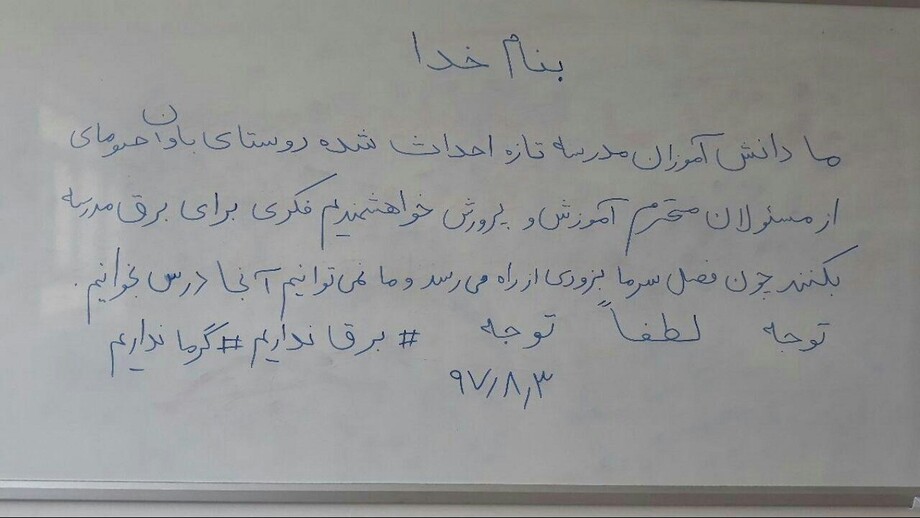 بنام خدا
ما دانش آموزان مدرسه تازه احداث شده روستای باوان صومای
از مسئولان محترم آموزش و پرورش خواهشمندیم فکری برای برق مدرسه
بکنند چون فصل سرما بزودی از راه می رسد و ما نمی توانیم آنجا درس بخوانیم.
توجه لطفاً توجه # برق نداریم # گرما نداریم
۹۷٫۸٫۳